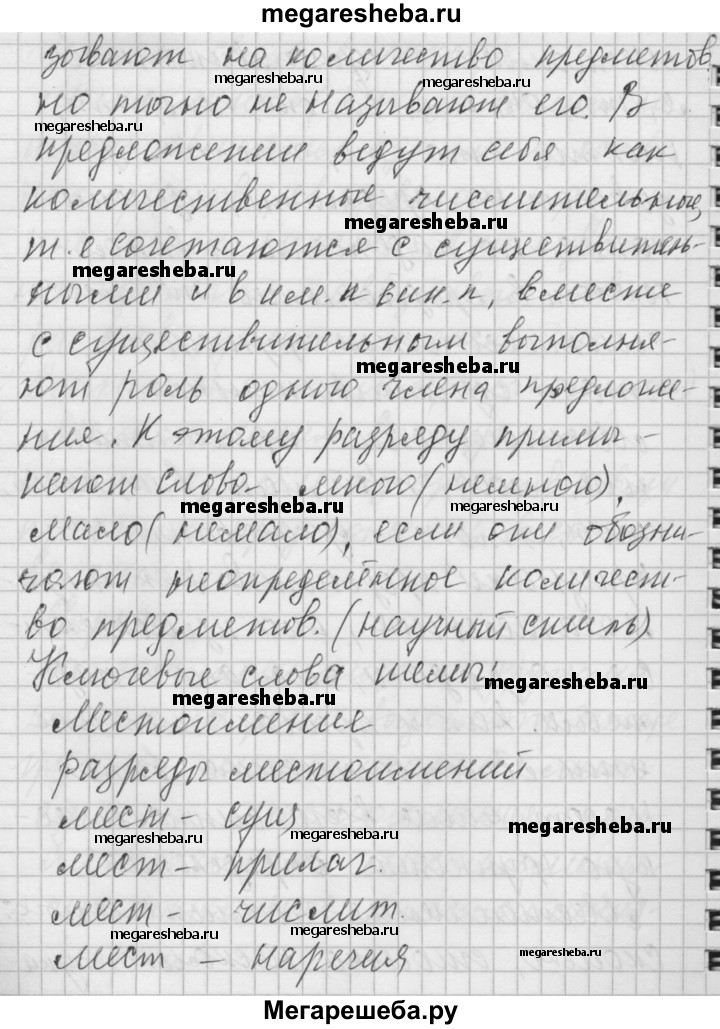 megaresheba.ru
зывают на количество предметов,
megaresheba.ru megaresheba.ru
но точно не называют его. В
megaresheba.ru
предложении ведут себя как
количественные числительные,
megaresheba.ru
т.е сочетаются с существитель-
megaresheba.ru
ными и в им.п вин.п, вместе
с существительным выполня-
megaresheba.ru
ют роль одного члена предложе-
ния. К этому разряду примы-
кают слова много (немного),
megaresheba.ru megaresheba.ru
мало (немало), если они обозна-
чают неопределённое количест-
во предметов. (научный стиль)
Ключевые слова темы:
megaresheba.ru megaresheba.ru
Местоимение
разряды местоимений
мест - сущ
megaresheba.ru megaresheba.ru megaresheba.ru
мест - прилаг.
мест - числит.
megaresheba.ru megaresheba.ru
мест - наречия
Мегарешеба.ру